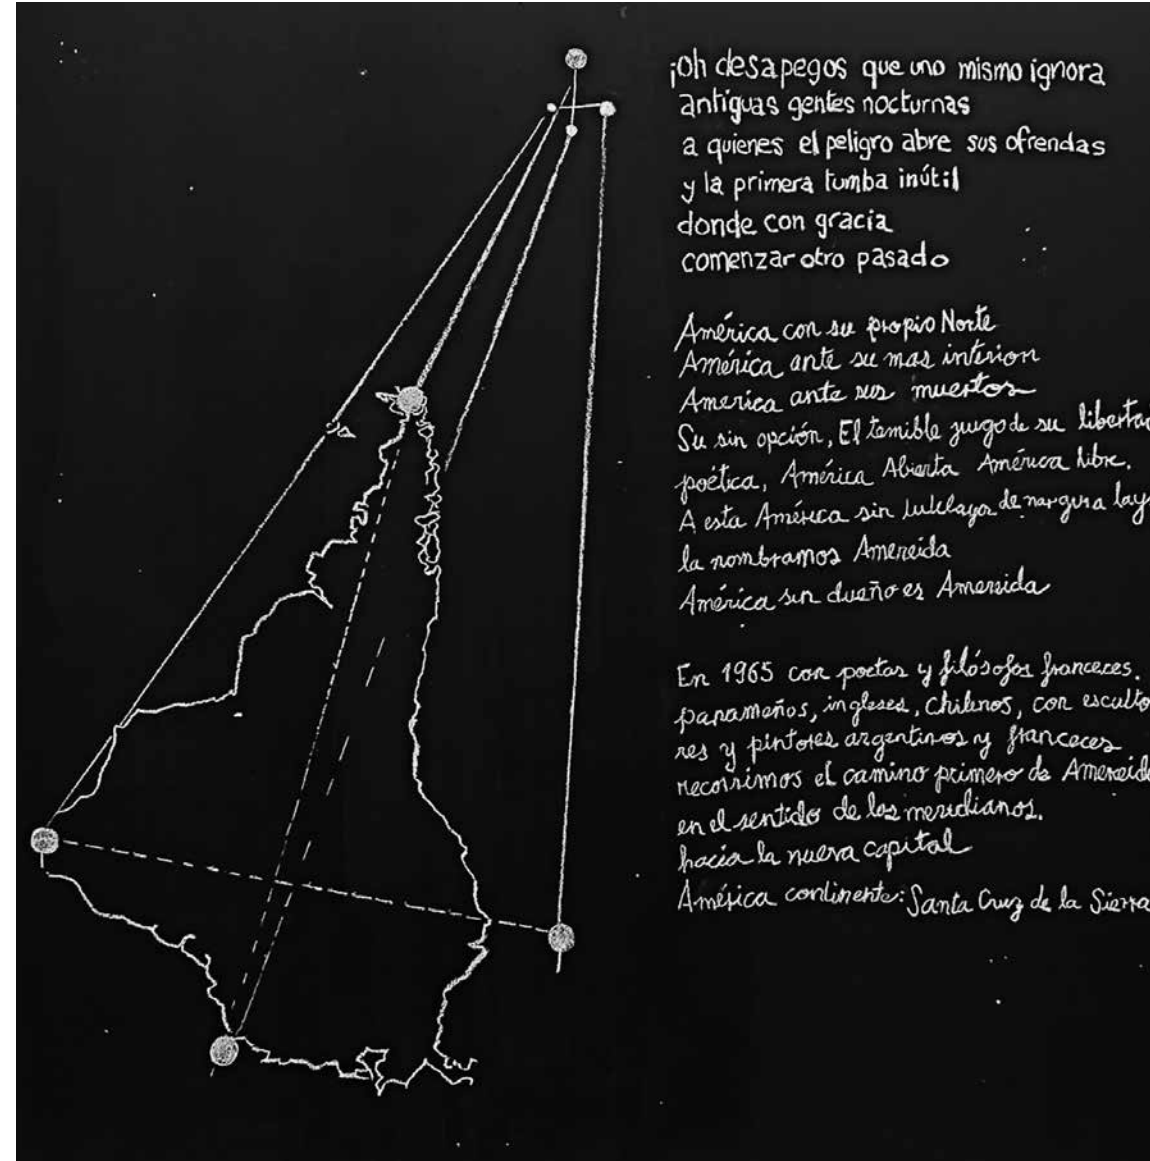 ¡Oh desapegos que uno mismo ignora
antiguas gentes nocturnas
a quienes el peligro abre sus ofrendas
y la primera tumba inútil
donde con gracia
comenzar otro pasado
América con su propio Norte
América ante su mas interior
America ante sus muertos
Su sin opción, El temible juego de su libertad
poética, América Abierta América libre.
A esta América sin
la nombramos Amereida
América sin dueño es Amereida
En 1965 con poetas y filósofos franceces.
panameños, ingleses, chilenos, con esculto
res y pintores argentinos y franceces
recorrimos el camino primero de Amereida
en el sentido de los meridianos.
hacia la nueva capital
América continente: Santa Cruz de la Sierra